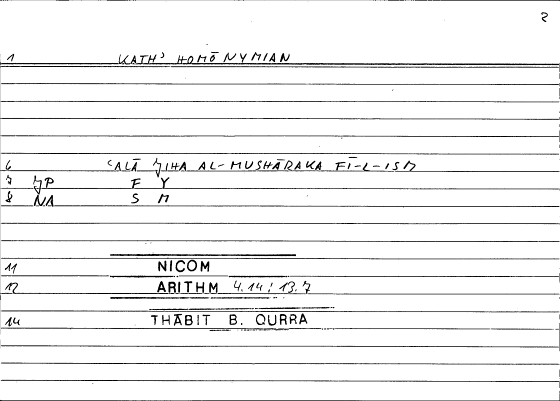 2
1 KATH' HOMŌNYMIAN
6 ʿALĀ JIHA AL-MUSHĀRAKA FĪ-L-ISM
7 JP F Y
8 NA S M
11 NICOM
12 ARITHM 4.14; 13.7
14 THĀBIT B. QURRA